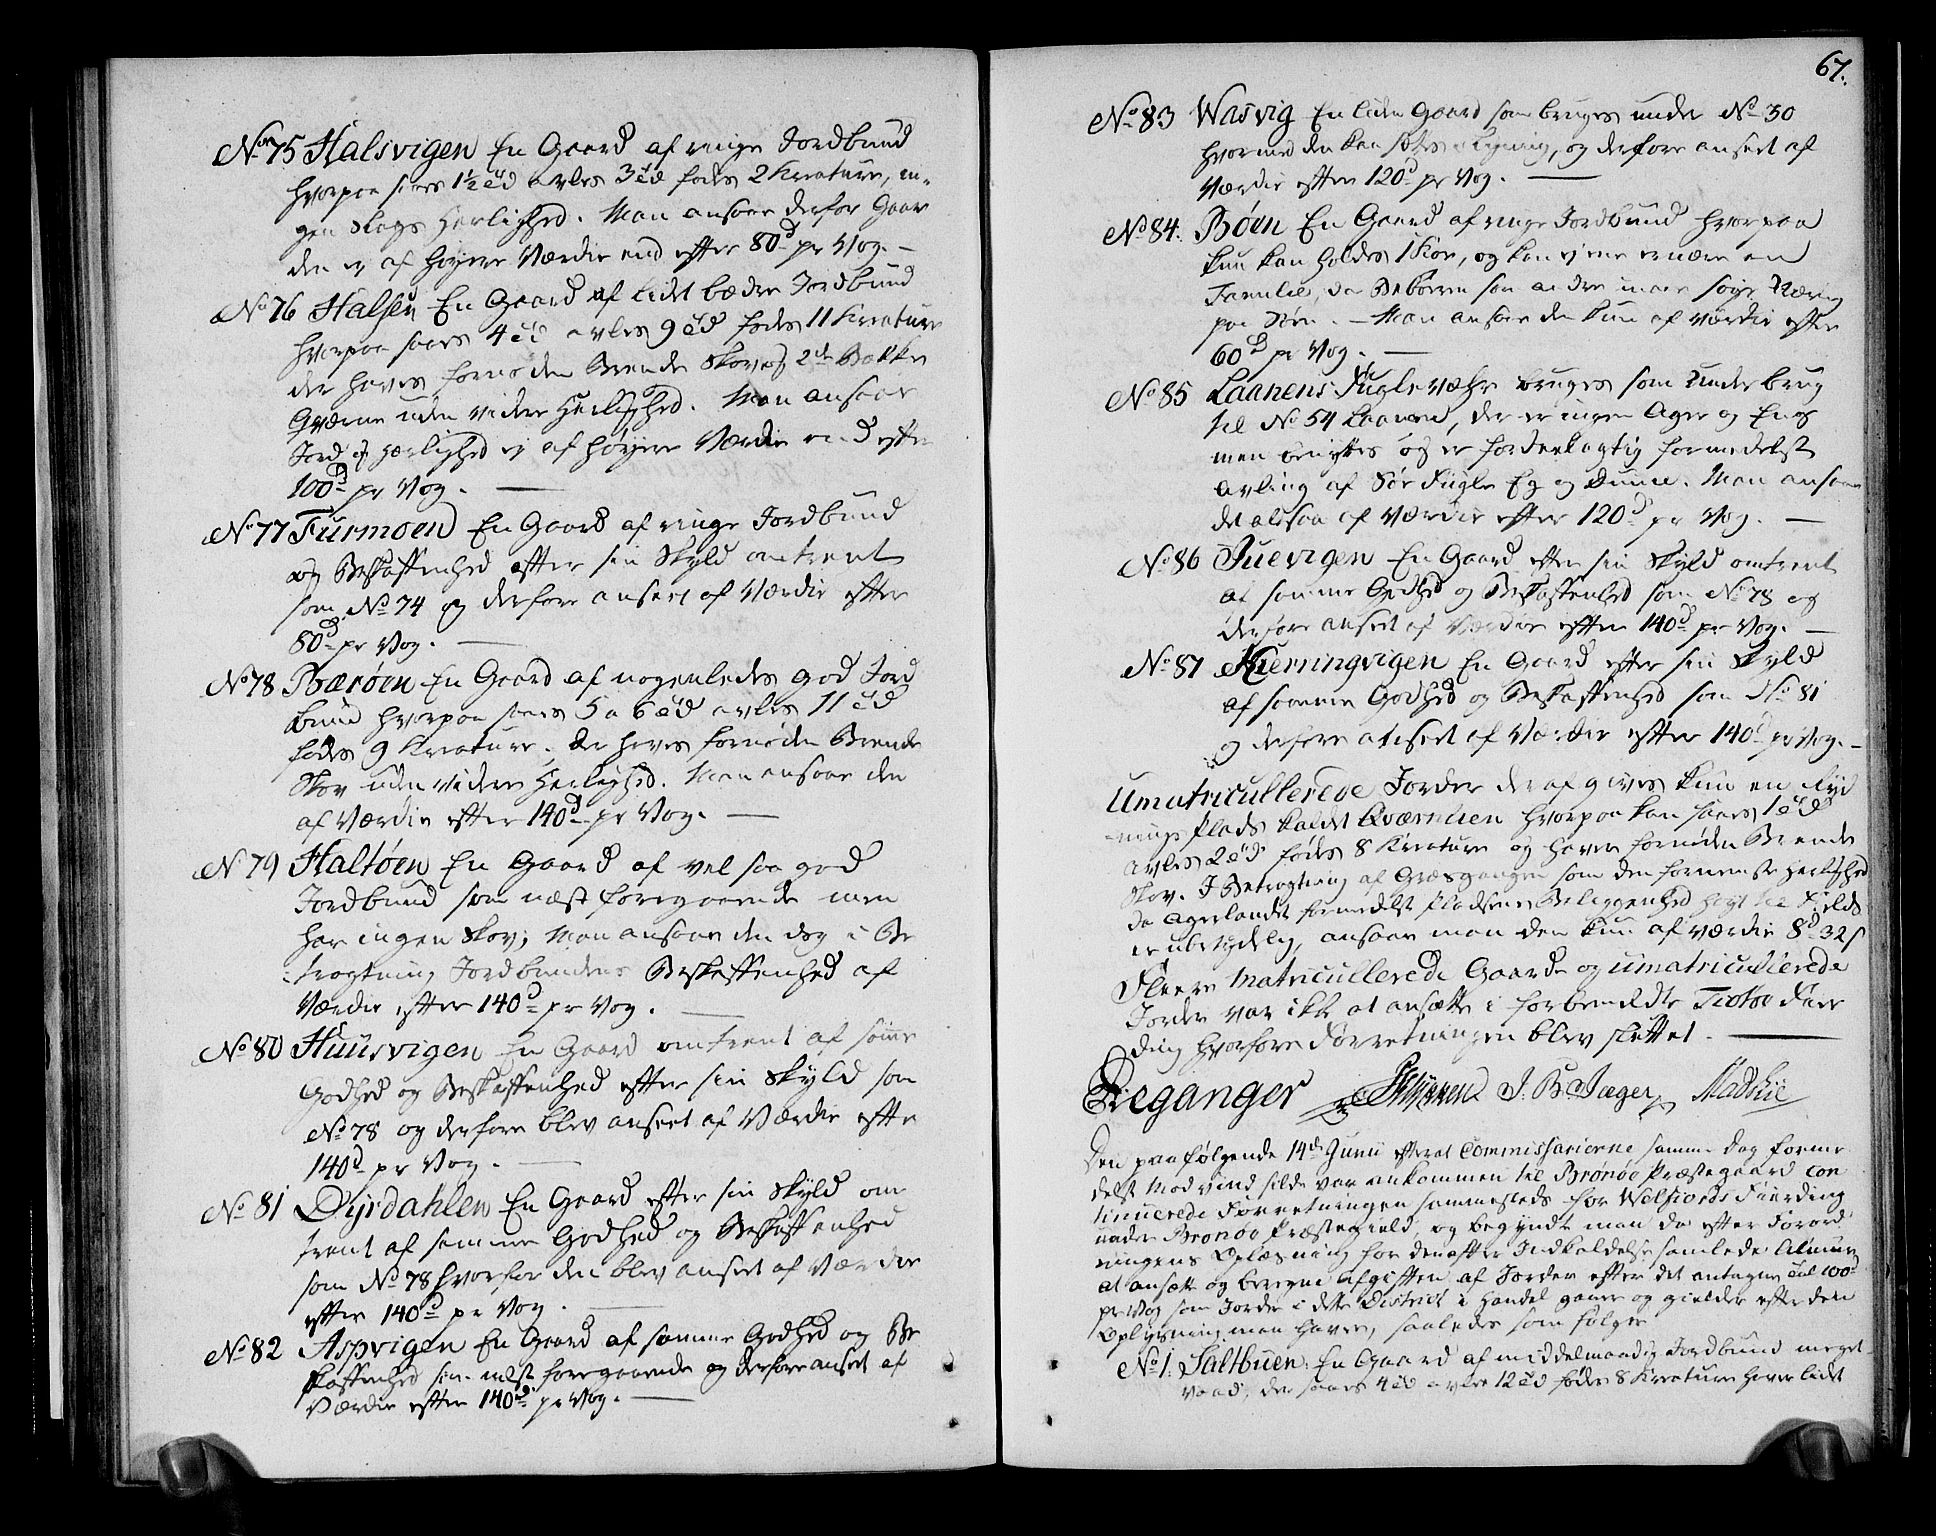 No 75 Halsvigen En Gaard af ringe Jordbund
hvorpaa saaes 1½ td avles 3 td fødes 2 Kreature, in-
gen slags Herlighed. Man ansaae derfor Gaar
den ej af høyere Værdie end efter 80d pr Vog. —
No 76 Halsen En Gaard af lidt bædre Jordbund
hvorpaa saaes 4 td avles 9 td fødes 11 Kreature
der haves fornøden Brende Skov og 2de Bække
Qværne uden videre Herlighed. Man ansaae
Jord og Herlighed ej af høyere Værdie end efter
100d pr Vog. —
No 77 Furmoen En Gaard af ringe Jordbund
og Beskaffenhed efter sin Skyld omtrent
som No 74 og derfore anseet af Værdie efter
80d pr Vog. —
No 78 Bærøen En Gaard af nogenledes god Jord
bund hvorpaa saaes 5 a 6 td avles 11 td
fødes 9 Kreature. Der haves fornøden Brende
Skov uden videre Herlighed. Man ansaae den
af Værdie efter 140d pr Vog. —
No 79 Haltøen En Gaard af vel saa god
Jordbund som næst foregaaende men
har ingen Skov; Man ansaae den dog i Be
tragtning Jordbundens Beskaffenhed af
Værdie efter 140d pr Vog. —
No 80 Huusvigen En Gaard omtrent af same
Godhed og Beskaffenhed efter sin Skyld som
No 78 og derfore blev anseet af Værdie efter
140d pr Vog. —
No 81 Dyrdahlen En Gaard efter sin Skyld om
trent af samme Godhed og Beskaffenhed
som No 78 hvorfor den blev anseet af Værdie
efter 140d pr Vog. —
No 82 Aspvigen En Gaard af samme Godhed og Be
skaffenhed som næst foregaaende og derfore anseet af
Værdie efter 140d pr Vog. —
67.
No 83 Wasvig En liden Gaard som bruges under No 30
hvormed den kan sættes i Ligning, og derfore anseet af
Værdie efter 120d pr Vog. —
No 84. Bøen En Gaard af ringe Jordbund hvorpaa
kun kan holdes 1 Koe, og kan ej ene ernære en
Familie, da Beboeren som andre maae søge Næring
paa Søen. — Man ansaae den kun af Værdie efter
60d pr Vog. —
No 85 Laanens Fuglevære bruges som Underbrug
til No 54 Laanen, der er ingen Ager og Eng
men benyttes og er fordeelagtig formedelst
Avling af Søe Fugle Eg og Duun. Man ansaae
det altsaa af Værdie efter 120d pr Vog. —
No 86 Tuevigen En Gaard efter sin Skyld omtrent
af samme Godhed og Beskaffenhed som No 78 og
derfore anseet af Værdie efter 140d pr Vog. —
No 87 Kierringvigen En Gaard efter sin Skyld
af samme Godhed og Beskaffenhed som No 81
og derfore anseet af Værdie efter 140d pr Vog. —
Umatricullerede Jorder der af gives kun en Ryd
nings Plads kaldet Qværnlien hvorpaa kan saaes 1 td
avles 2 td fødes 8 Kreature og haver fornøden Brende
Skov. I Betragtning af Græsgangen som den fornemste Herlighed
da Agerlandet formedelst Pladsens Beliggenhed høyt til Fields
er ubetydelig, ansaae man den kun af Værdie 8d 32 s
Fleere Matricullerede Gaarde og umatricullerede
Jorder var ikke at ansætte i forbemeldte Tiøtøe Fier
ding hvorfore Forretningen blev sluttet. —
Deganger J. B. Jæger
Den paafølgende 14de Junii efterat Commissarierne samme Dag forme
delst Modvind silde var ankommen til Brønøe Præstegaard con
tinuerede Forretningen sammesteds for Welfiords Fiærding
under Brønøe Præstegield, og begyndte man da efter Forord
ningens Oplæsning for den efter Indkaldelse samlede Almue
at ansætte og beregne Afgiften af Jorder efter det antagne Tal 100d
pr Vog som Jorder i dette District i Handel gaaer og gielder efter den
Oplysning man haver, saaledes som følger
No 1. Saltbuen: En Gaard af middelmaadig Jordbund meget
vaad, der saaes 4 td avles 12 td fødes 8 Kreature haver lidet